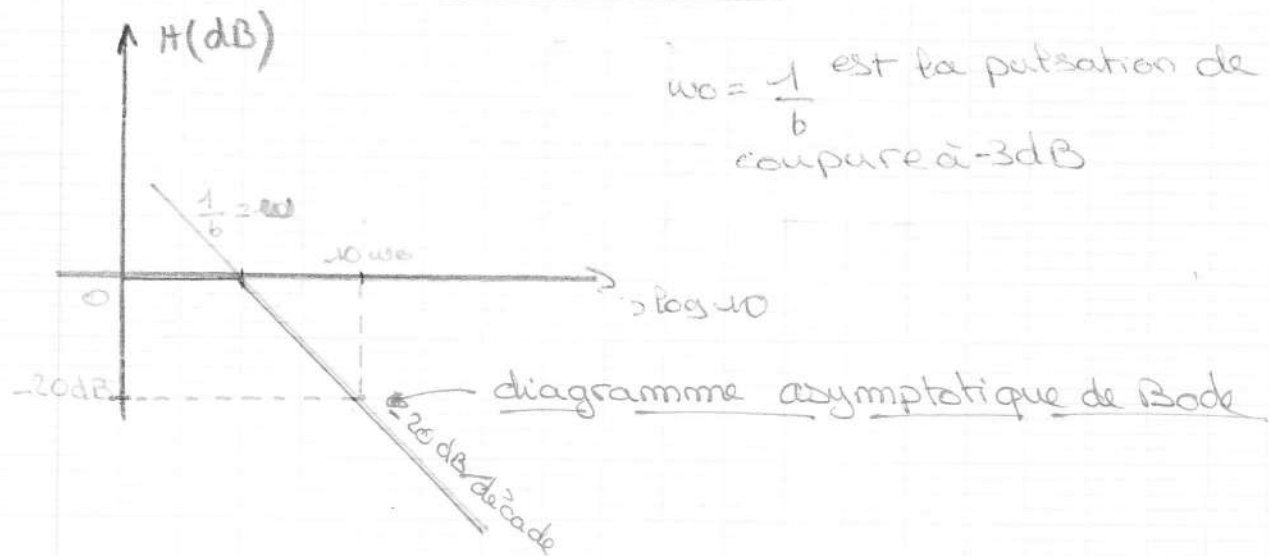 H(dB)
ω0 = 1/b est la pulsation de
coupure à -3dB
1/b = ω0
10 ω0
0
log 10
-20dB
diagramme asymptotique de Bode
-20 dB/décade